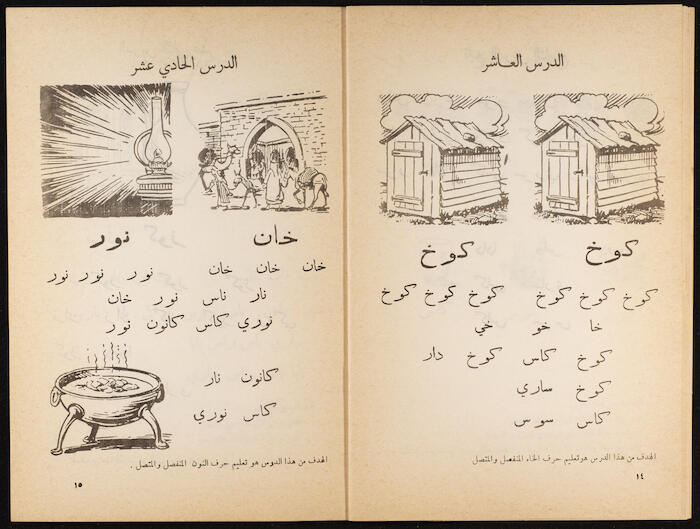 الدرس العاشر
كوخ كوخ
كوخ كوخ كوخ كوخ كوخ كوخ
خا خو خي
كوخ كاس كوخ دار
كوخ ساري
كاس سوس
الهدف من هذا الدرس هو تعليم حرف الخاء المنفصل والمتصل
١٤
الدرس الحادي عشر
خان نور
خان خان خان نور نور نور
نار ناس نور خان
نوري كاس كانون نور
كانون نار
كاس نوري
الهدف من هذا الدرس هو تعليم حرف النون المنفصل والمتصل .
١٥